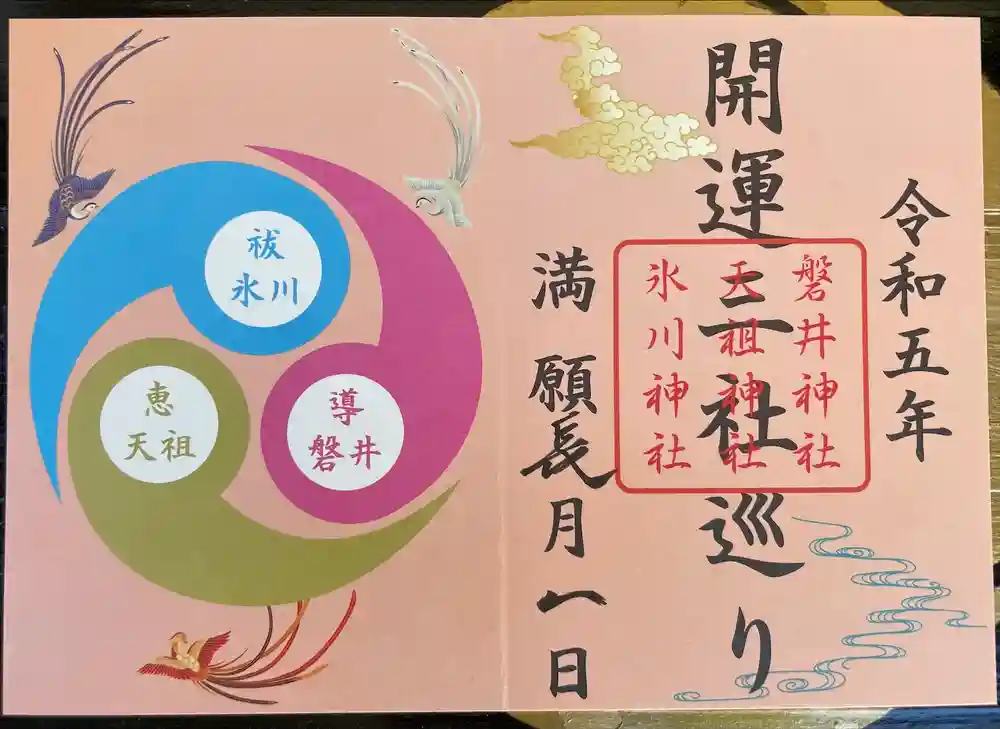 令和五年
開運三社巡り
磐井神社
天祖神社
氷川神社
満願
長月一日
祓
氷川
導
磐井
恵
天祖